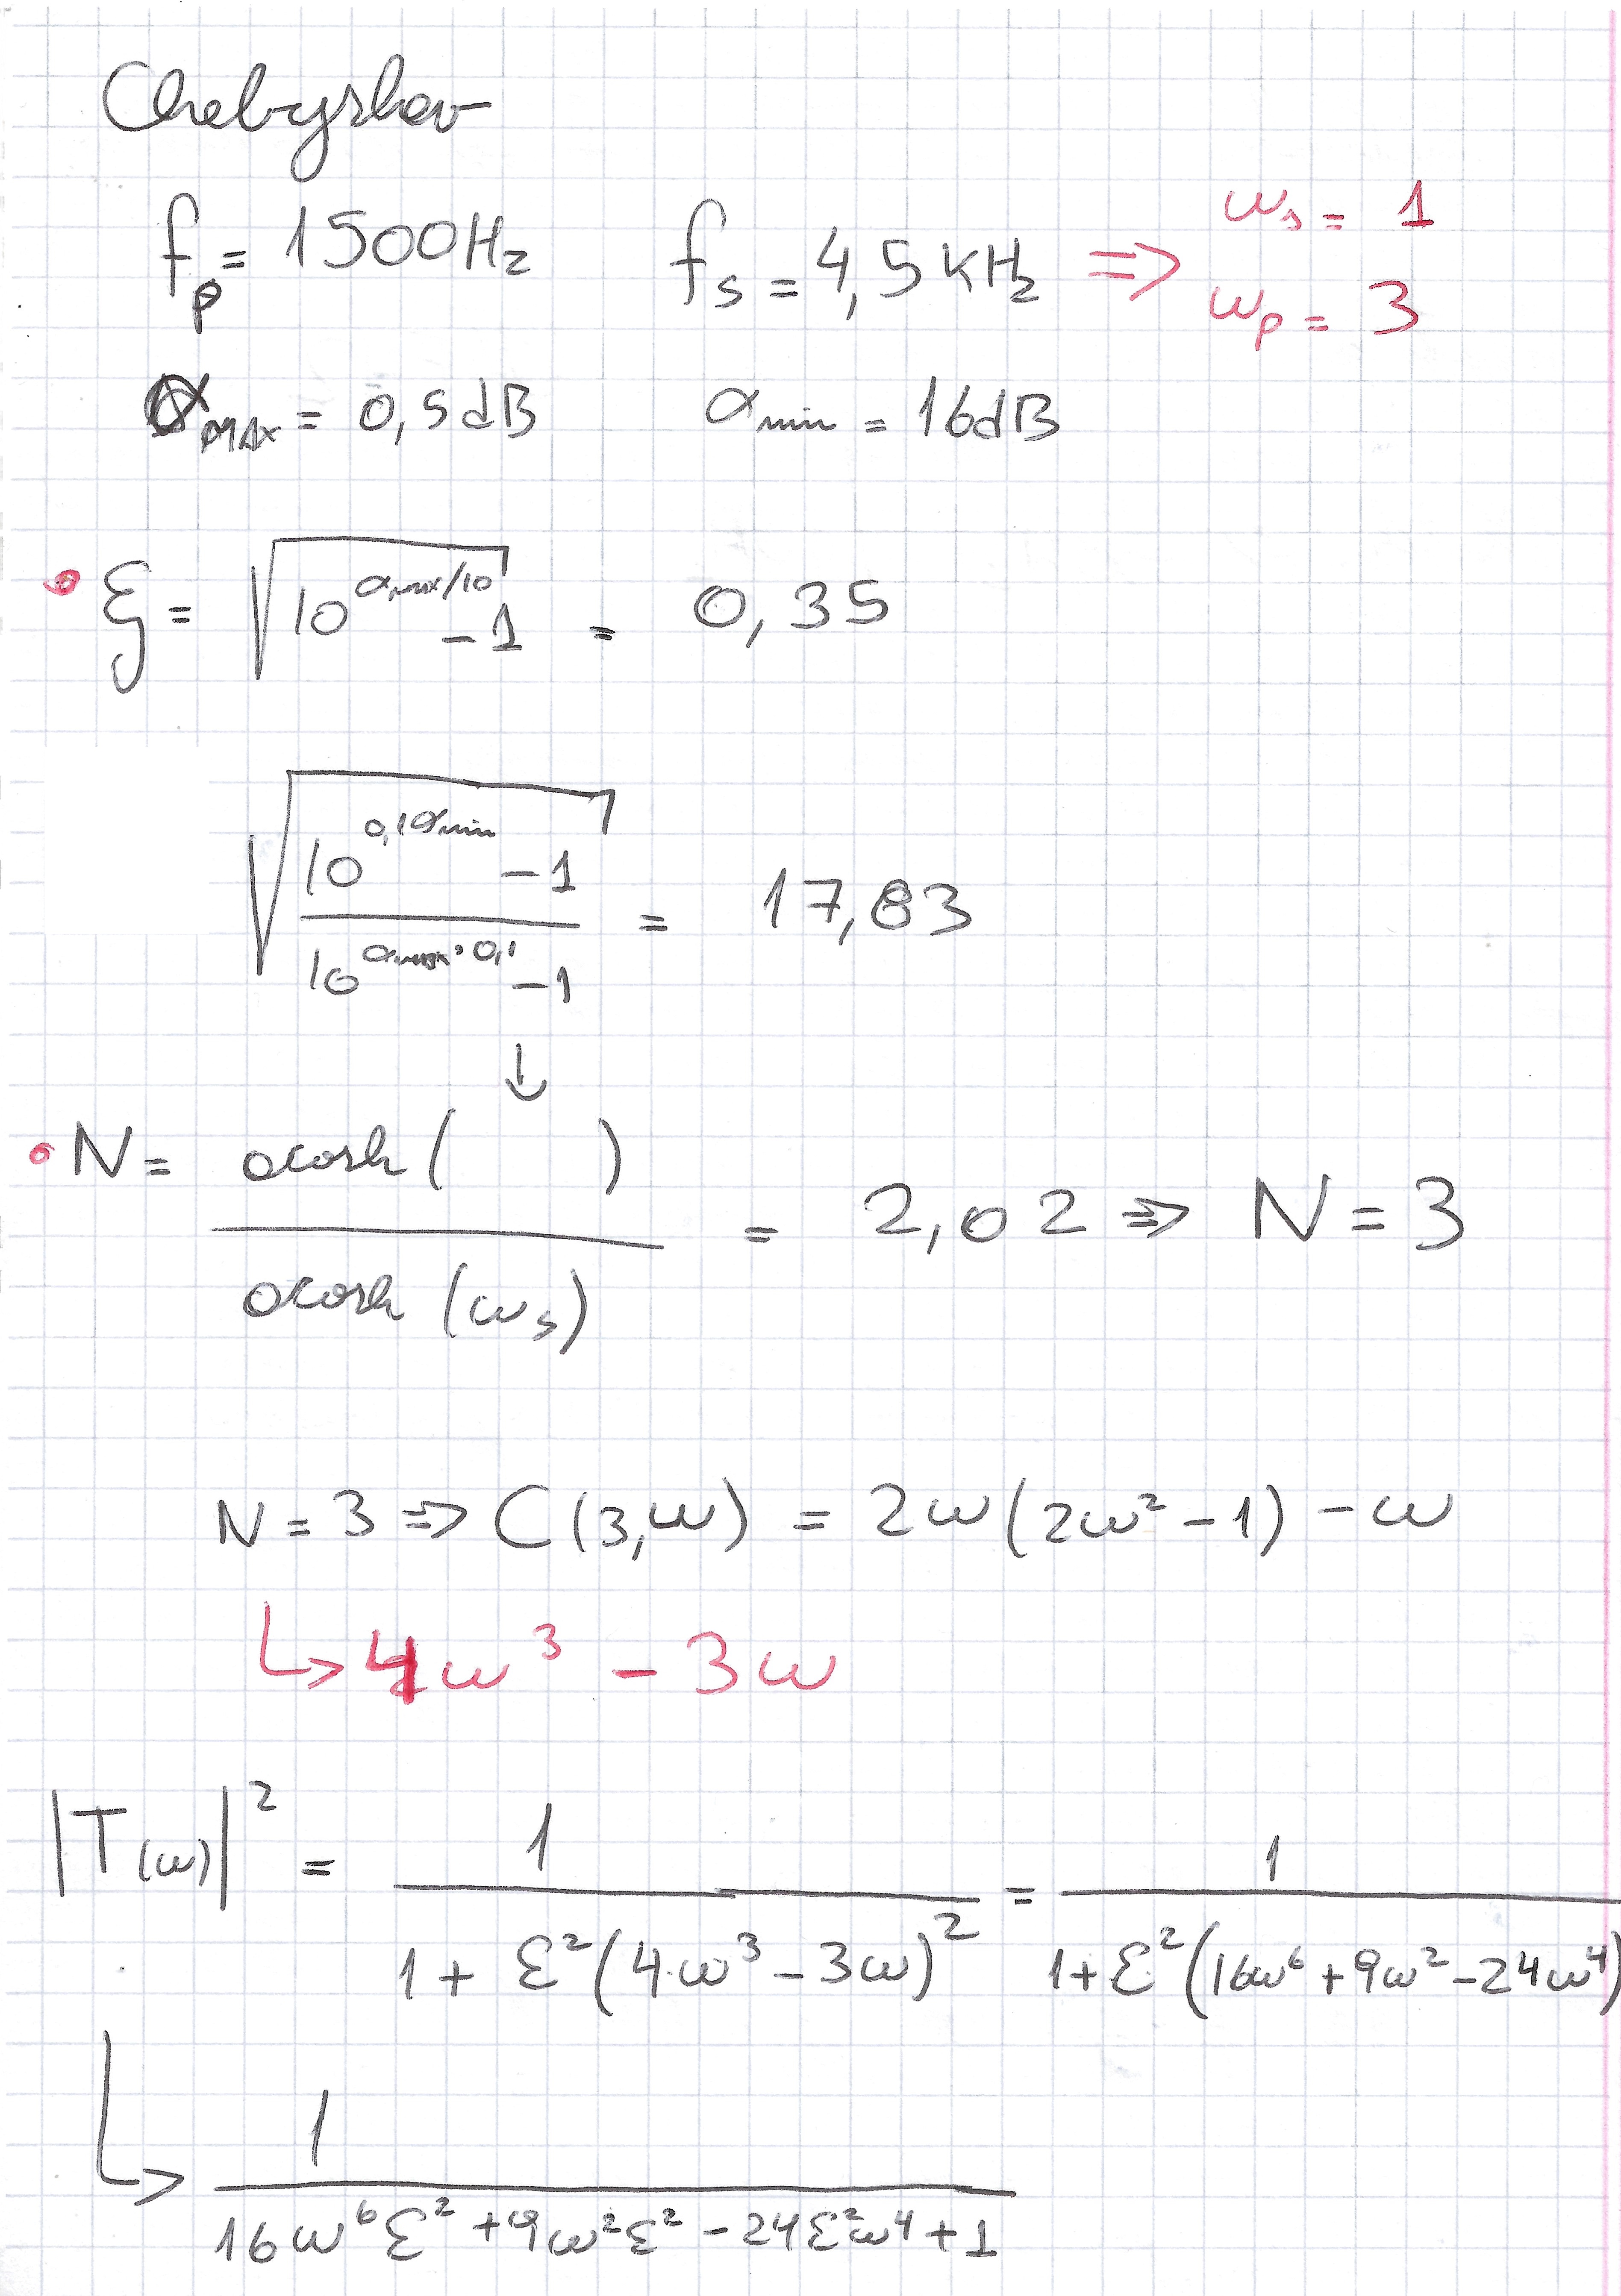 Chebyshev
f_p = 1500Hz f_s = 4,5 kHz ⇒ ω_s = 1
ω_p = 3
α_MAX = 0,5dB α_min = 16dB
• ξ = √(10^(α_max/10) - 1) = 0,35
√((10^(0,1α_min) - 1)/(10^(α_max·0,1) - 1)) = 17,83
↓
• N = acosh( ) / acosh(ω_s) = 2,02 ⇒ N = 3
N = 3 ⇒ C(3,ω) = 2ω(2ω² - 1) - ω
↳ 4ω³ - 3ω
|T(ω)|² = 1/(1 + ε²(4ω³ - 3ω)²) = 1/(1 + ε²(16ω⁶ + 9ω² - 24ω⁴)
↳ 1/(16ω⁶ε² + 9ω²ε² - 24ε²ω⁴ + 1